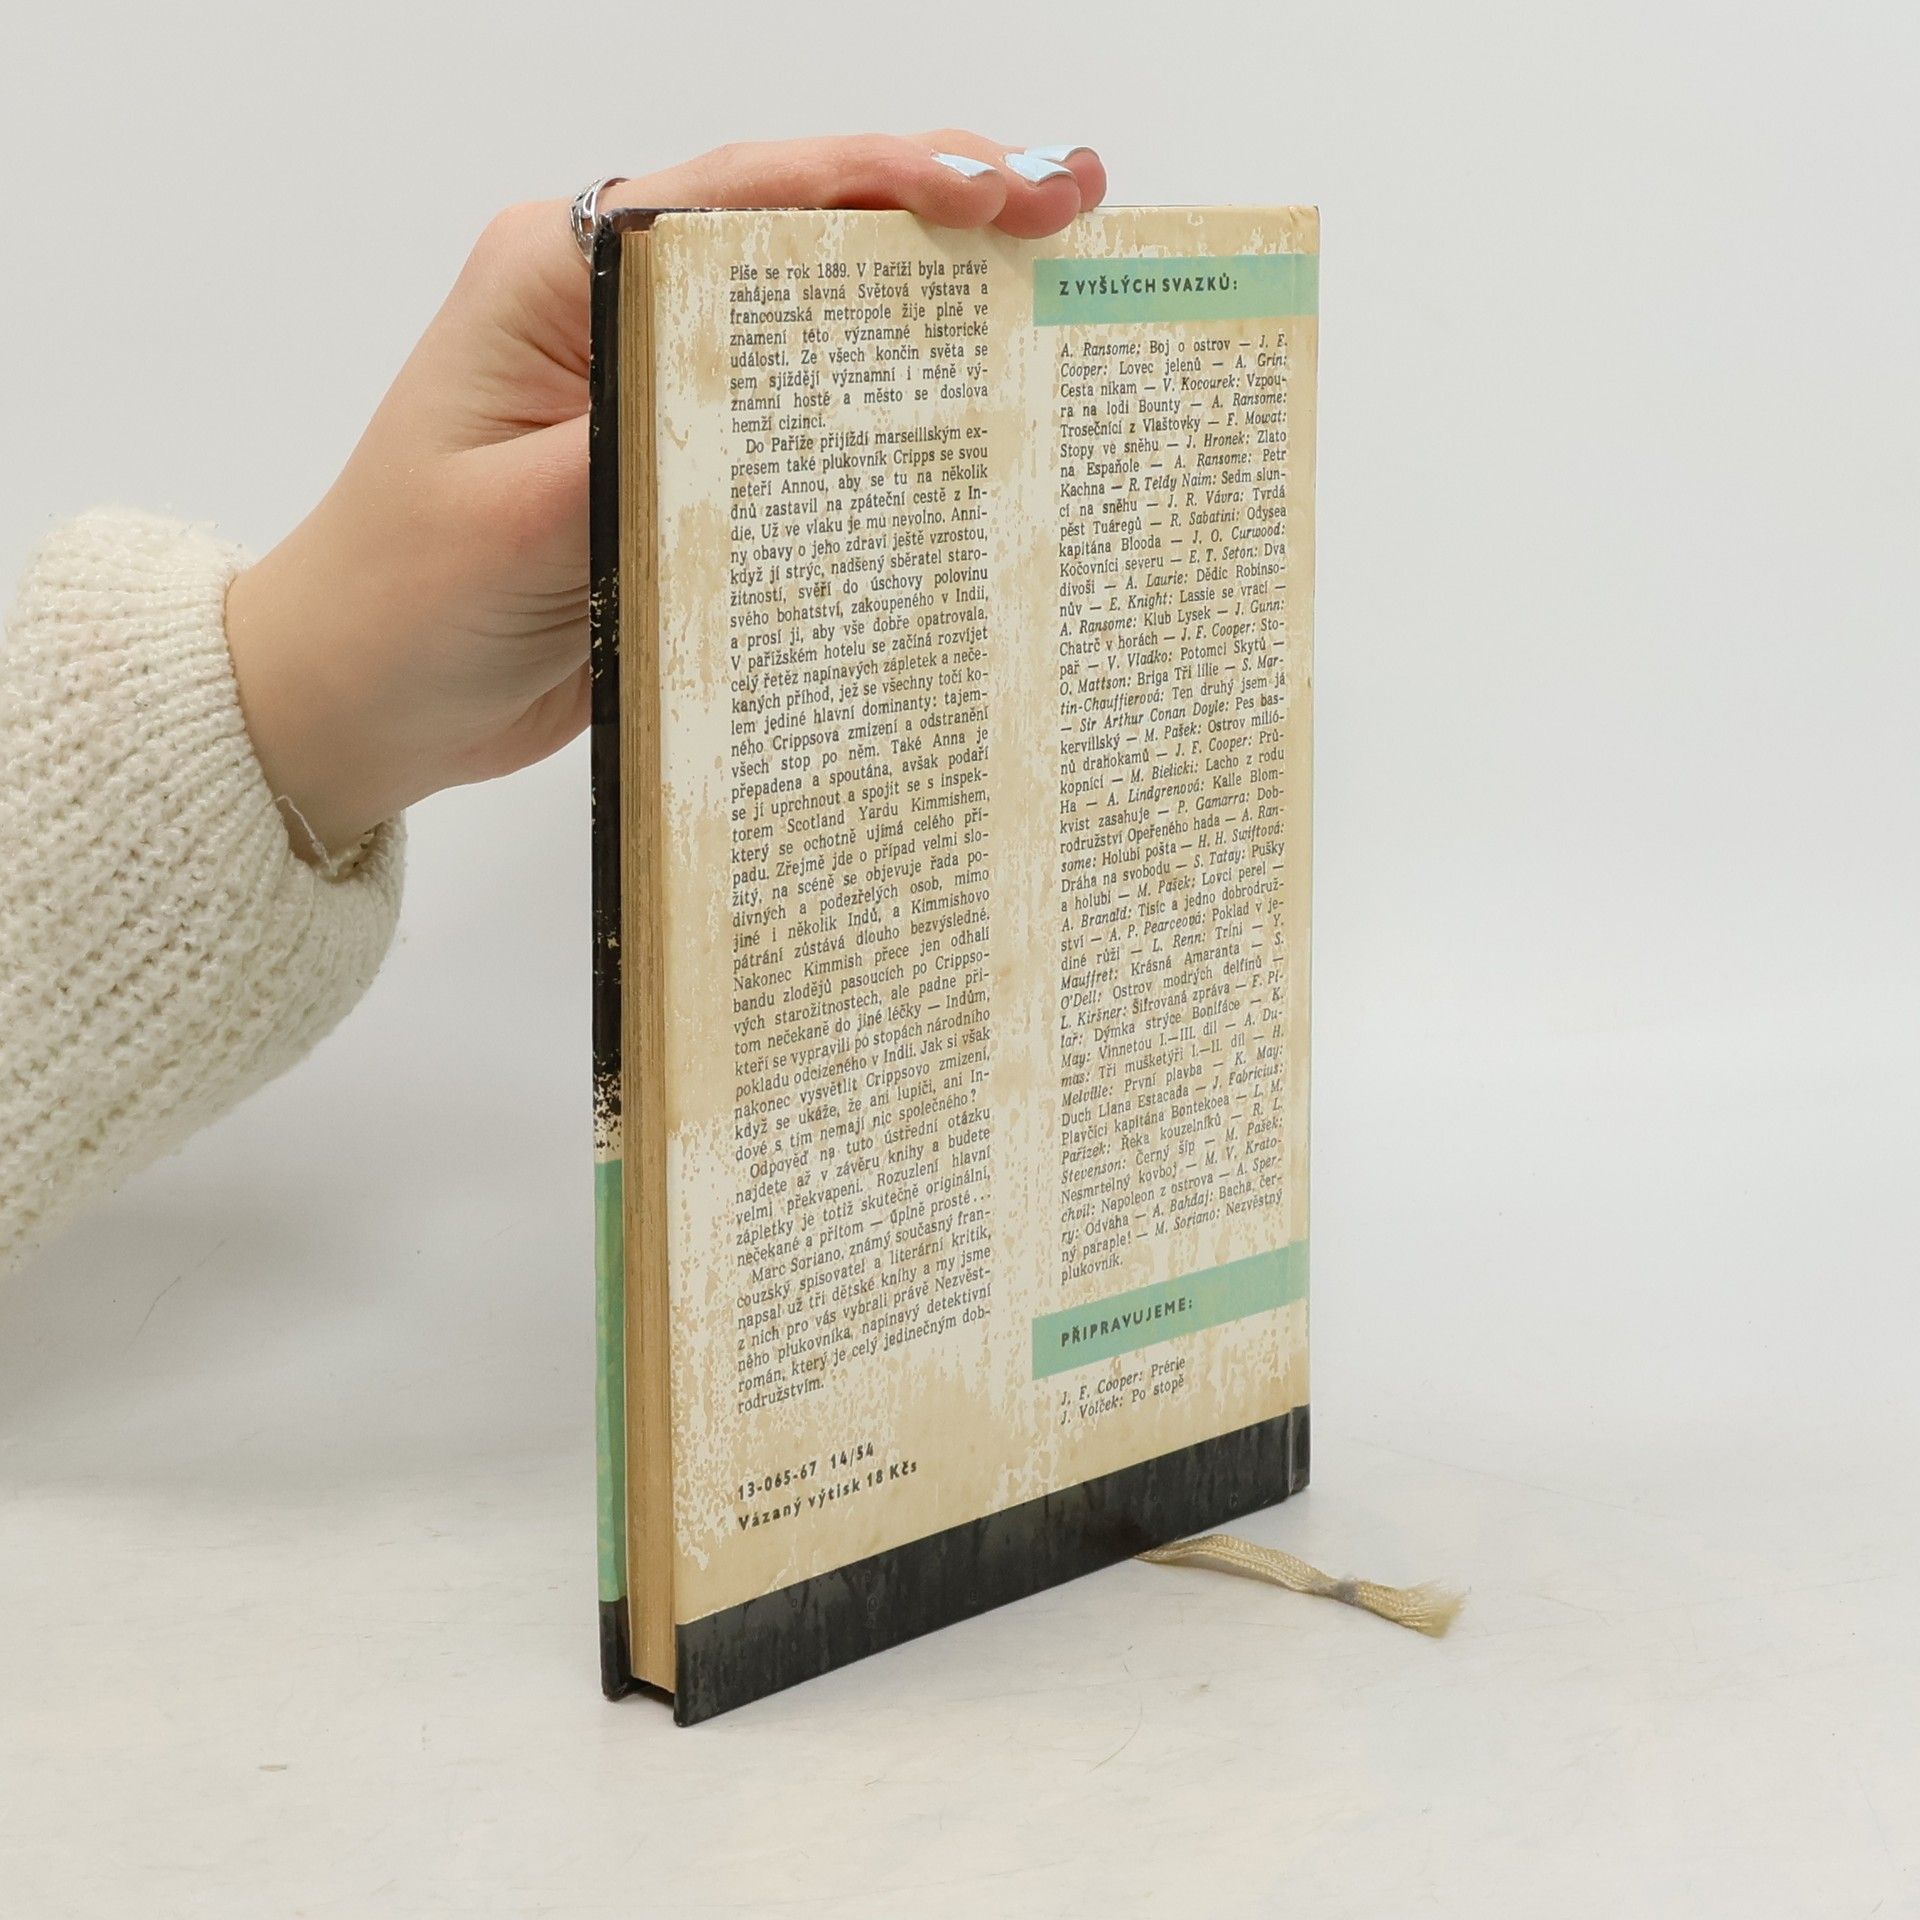 Píše se rok 1889. V Paříži byla právě
zahájena slavná Světová výstava a
francouzská metropole žije plně ve
znamení této významné historické
události. Ze všech končin světa se
sem sjíždějí významní i méně vý-
znamní hosté a město se doslova
hemží cizinci.
Do Paříže přijíždí marseillským ex-
presem také plukovník Cripps se svou
neteří Annou, aby se tu na několik
dnů zastavil na zpáteční cestě z In-
die. Už ve vlaku je mu nevolno. Anni-
ny obavy o jeho zdraví ještě vzrostou,
když jí strýc, nadšený sběratel staro-
žitností, svěří do úschovy polovinu
svého bohatství, zakoupeného v Indii,
a prosí ji, aby vše dobře opatrovala.
V pařížském hotelu se začíná rozvíjet
celý řetěz napínavých zápletek a neče-
kaných příhod, jež se všechny točí ko-
lem jediné hlavní dominanty: tajem-
ného Crippsova zmizení a odstranění
všech stop po něm. Také Anna je
přepadena a spoutána, avšak podaří
se jí uprchnout a spojit se s inspek-
torem Scotland Yardu Kimmishem,
který se ochotně ujímá celého pří-
padu. Zřejmě jde o případ velmi slo-
žitý, na scéně se objevuje řada po-
divných a podezřelých osob, mimo
jiné i několik Indů, a Kimmishovo
pátrání zůstává dlouho bezvýsledné.
Nakonec Kimmish přece jen odhalí
bandu zlodějů pasoucích po Crippso-
vých starožitnostech, ale padne při-
tom nečekaně do jiné léčky — Indům,
kteří se vypravili po stopách národního
pokladu odcizeného v Indii. Jak si však
nakonec vysvětlit Crippsovo zmizení,
když se ukáže, že ani lupiči, ani In-
dové s tím nemají nic společného?
Odpověď na tuto ústřední otázku
najdete až v závěru knihy a budete
velmi překvapeni. Rozuzlení hlavní
zápletky je totiž skutečně originální,
nečekané a přitom — úplně prosté...
Marc Soriano, známý současný fran-
couzský spisovatel a literární kritik,
napsal už tři dětské knihy a my jsme
z nich pro vás vybrali právě Nezvěst-
ného plukovníka, napínavý detektivní
román, který je celý jedinečným dob-
rodružstvím.
13-065-67 14/54
Vázaný výtisk 18 Kčs
Z VYŠLÝCH SVAZKŮ:
A. Ransome: Boj o ostrov — J. F.
Cooper: Lovec jelenů — A. Grin:
Cesta nikam — V. Kocourek: Vzpou-
ra na lodi Bounty — A. Ransome:
Trosečníci z Vlaštovky — F. Mowat:
Stopy ve sněhu — J. Hronek: Zlato
na Espaňole — A. Ransome: Petr
Kachna — R. Teldy Naim: Sedm slun-
cí na sněhu — J. R. Vávra: Tvrdá
pěst Tuáregů — R. Sabatini: Odysea
kapitána Blooda — J. O. Curwood:
Kočovníci severu — E. T. Seton: Dva
divoši — A. Laurie: Dědic Robinso-
nův — E. Knight: Lassie se vrací —
A. Ransome: Klub Lysek — J. Gunn:
Chatrč v horách — J. F. Cooper: Sto-
pař — V. Vladko: Potomci Skytů —
O. Mattson: Briga Tři lilie — S. Mar-
tin-Chauffierová: Ten druhý jsem já
— Sir Arthur Conan Doyle: Pes bas-
kervillský — M. Pašek: Ostrov milió-
nů drahokamů — J. F. Cooper: Prů-
kopníci — M. Bielicki: Lacho z rodu
Ha — A. Lindgrenová: Kalle Blom-
kvist zasahuje — P. Gamarra: Dob-
rodružství Opeřeného hada — A. Ran-
some: Holubí pošta — H. H. Swiftová:
Dráha na svobodu — S. Tatay: Pušky
a holubi — M. Pašek: Lovci perel —
A. Branald: Tisíc a jedno dobrodruž-
ství — A. P. Pearceová: Poklad v je-
diné růži — L. Renn: Trini — Y.
Mauffret: Krásná Amaranta — S.
O'Dell: Ostrov modrých delfínů —
L. Kiršner: Šifrovaná zpráva — F. Pi-
lař: Dýmka strýce Bonifáce — K.
May: Vinnetou I.—III. díl — A. Du-
mas: Tři mušketýři I.—II. díl — H.
Melville: První plavba — K. May:
Duch Llana Estacada — J. Fabricius:
Plavčíci kapitána Bontekoea — L. M.
Pařízek: Řeka kouzelníků — R. L.
Stevenson: Černý šíp — M. Pašek:
Nesmrtelný kovboj — M. V. Krato-
chvíl: Napoleon z ostrova — A. Sper-
ry: Odvaha — A. Bahdaj: Bacha, čer-
ný paraple! — M. Soriano: Nezvěstný
plukovník.
PŘIPRAVUJEME:
J. F. Cooper: Prérie
J. Volček: Po stopě